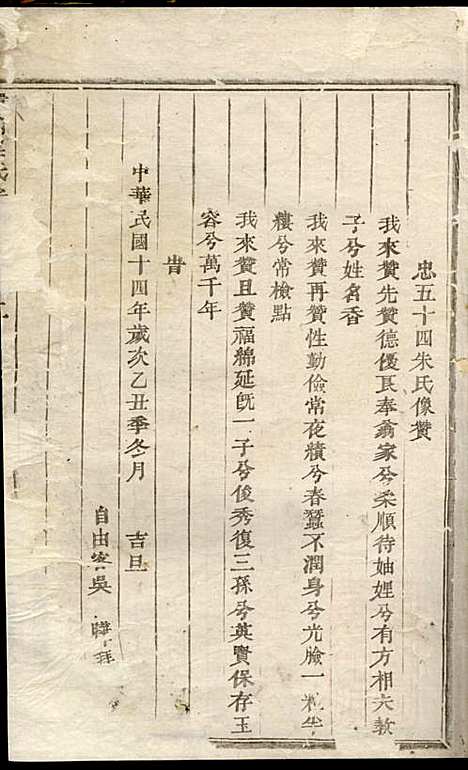 忠五十四朱氏像贊
我來贊先贊德優良奉翁家兮柔順待妯娌兮有方相夫教
子兮姓名香
我來贊再贊性勤儉常夜績兮春蠶不潤身兮光臉一粒半
縷兮常檢點
我來贊且贊福綿延既一子兮俊秀復三孫兮英賢保存玉
容兮萬千年
旹
中華民國十四年歲次乙丑季冬月 吉旦
自由客吳 暐 拜